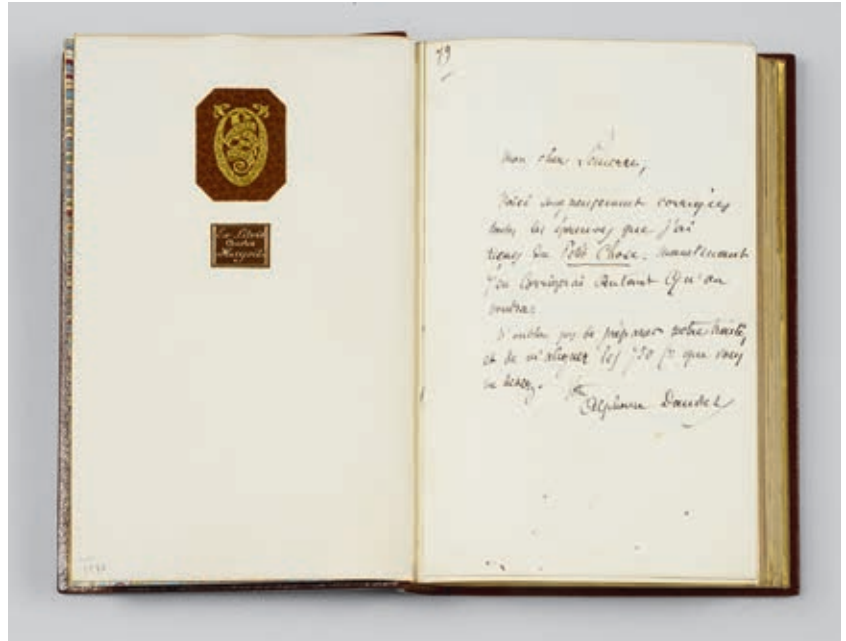 Ex Libris
Charles
Hayoit
79
Mon cher Lemerre,
Voici soigneusement corrigées
toutes les épreuves que j'ai
reçues du Petit Chose. Maintenant
j'en corrigerai autant qu'on
voudra.
N'oubliez pas de préparer notre traité,
et de m'aligner les 750 fr que vous
me devez.
Alphonse Daudet